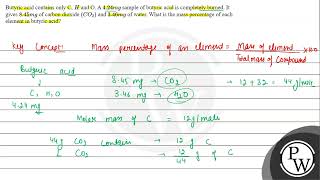 Butyric acid contains only C, H and O. A 4.24mg sample of butyric acid is completely burned. It
gives 8.45mg of carbon dioxide (CO₂) and 3.46mg of water. What is the mass percentage of each
element in butyric acid?
Key Concept: Mass percentage of an element = Mass of element / Total mass of Compound × 100
Butyric acid
↓
C, H, O
4.24 mg
8.45 mg → CO₂ → 12 + 32 = 44 g/mole
3.46 mg → H₂O
Molar mass of C = 12 g/mole
44g CO₂ contains → 12 g C
CO₂ → 12/44 g of C
PW